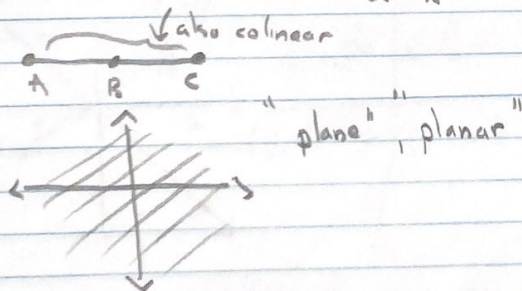 also colinear
A B C
"plane", "planar"